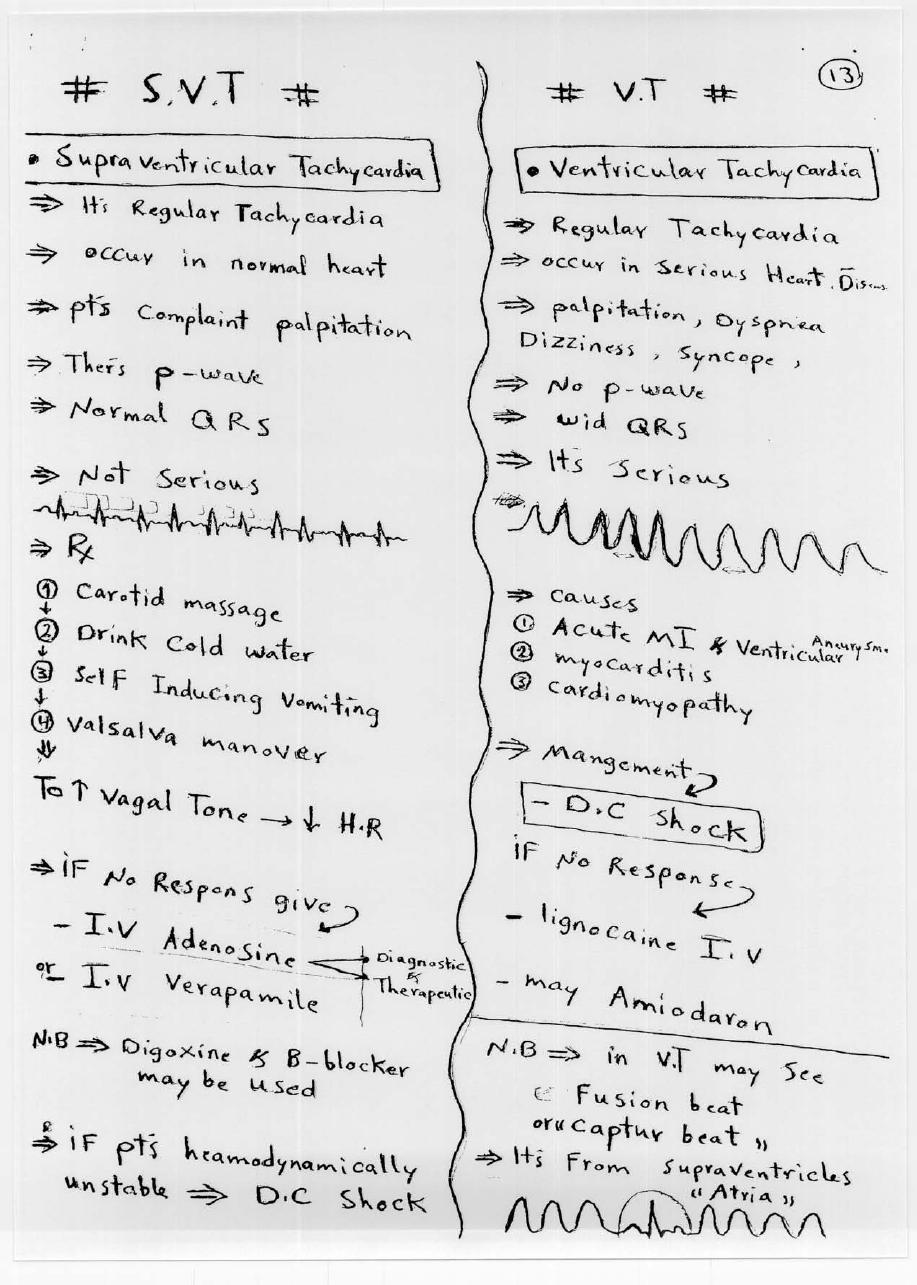 # S.V.T #
• Supraventricular Tachycardia
⇒ It's Regular Tachycardia
⇒ occur in normal heart
⇒ pt's Complaint palpitation
⇒ Ther's p-wave
⇒ Normal QRS
⇒ Not Serious
⇒ Rx
① Carotid massage
↓
② Drink Cold water
↓
③ Self Inducing Vomiting
↓
④ Valsalva manover
⇓
To ↑ Vagal Tone → ↓ H.R
⇒ iF No Respons give
- I.V Adenosine
Diagnostic
&
Therapeutic
or - I.V Verapamile
N.B ⇒ Digoxine & B-blocker
may be used
⇒ iF pt's heamodynamically
unstable ⇒ D.C Shock
13
# V.T #
• Ventricular Tachycardia
⇒ Regular Tachycardia
⇒ occur in Serious Heart.
⇒ palpitation, Dyspnea
Dizziness, Syncope,
⇒ No p-wave
⇒ wid QRS
⇒ It's Serious
⇒ causes
① Acute MI & Ventricular
② myocarditis
③ cardiomyopathy
⇒ Mangement
- D.C Shock
iF No Response
- lignocaine I.V
- may Amiodaron
N.B ⇒ in V.T may See
" Fusion beat
or " Captur beat "
⇒ It's From Supraventricles
" Atria "